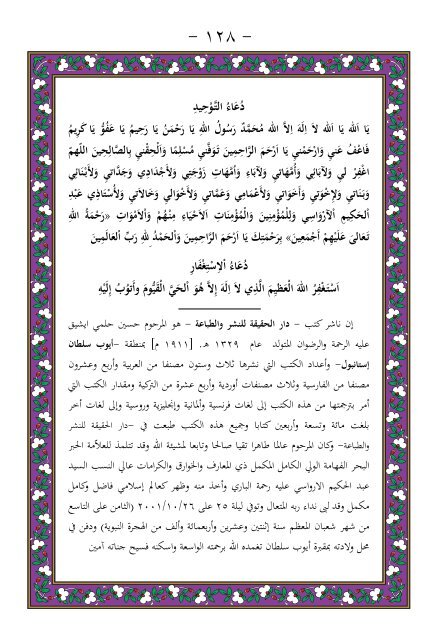 - ١٢٨ -
دُعَاءُ التَّوْحِيدِ
يَا اَللهُ يَا اَللهُ لاَ اِلٰهَ اِلاَّ اللهُ مُحَمَّدٌ رَسُولُ اللهِ يَا رَحْمٰنُ يَا رَحِيمُ يَا عَفُوُّ يَا كَرِيمُ
فَاعْفُ عَنِّي وَارْحَمْنِي يَا اَرْحَمَ الرَّاحِمِينَ تَوَفَّنِي مُسْلِمًا وَاَلْحِقْنِي بِالصَّالِحِينَ اَللّٰهُمَّ
اغْفِرْ لِي وَلِآبَائِي وَاُمَّهَاتِي وَلِآبَاءِ وَاُمَّهَاتِ زَوْجَتِي وَلِأَجْدَادِي وَجَدَّاتِي وَلِأَبْنَائِي
وَبَنَاتِي وَلِإِخْوَتِي وَاَخَوَاتِي وَلِأَعْمَامِي وَعَمَّاتِي وَلِأَخْوَالِي وَخَالاَتِي وَلِأُسْتَاذِي عَبْدِ
الْحَكِيمِ الْآرْوَاسِي وَلِلْمُؤْمِنِينَ وَالْمُؤْمِنَاتِ اَلْاَحْيَاءِ مِنْهُمْ وَالْاَمْوَاتِ «رَحْمَةُ اللهِ
تَعَالَى عَلَيْهِمْ اَجْمَعِينَ» بِرَحْمَتِكَ يَا اَرْحَمَ الرَّاحِمِينَ وَالْحَمْدُ لِلّٰهِ رَبِّ الْعَالَمِينَ
دُعَاءُ الْاِسْتِغْفَارِ
اَسْتَغْفِرُ اللهَ الْعَظِيمَ الَّذِي لاَ اِلٰهَ اِلاَّ هُوَ الْحَيَّ الْقَيُّومَ وَاَتُوبُ اِلَيْهِ
إن ناشر كتب – دار الحقيقة للنشر والطباعة – هو المرحوم حسين حلمي ايشيق
عليه الرحمة والرضوان المتولد عام ١٣٢٩ هـ. [١٩١١ م] بمنطقة –ايوب سلطان
إستانبول– وأعداد الكتب التي نشرها ثلاث وستون مصنفا من العربية وأربع وعشرون
مصنفا من الفارسية وثلاث مصنفات أوردية وأربع عشرة من التركية ومقدار الكتب التي
أمر بترجمتها من هذه الكتب إلى لغات فرنسية وألمانية وإنجليزية وروسية وإلى لغات أخر
بلغت مائة وتسعة وأربعين كتابا وجميع هذه الكتب طبعت في –دار الحقيقة للنشر
والطباعة– وكان المرحوم عالما طاهرا تقيا صالحا وتابعا لمشيئة الله وقد تتلمذ للعلامة الحبر
البحر الفهامة الولي الكامل المكمل ذي المعارف والخوارق والكرامات عالي النسب السيد
عبد الحكيم الارواسي عليه رحمة الباري وأخذ منه وظهر كعالم إسلامي فاضل وكامل
مكمل وقد لبى نداء ربه المتعال وتوفي ليلة ٢٥ على ٢٠٠١/١٠/٢٦ (الثامن على التاسع
من شهر شعبان المعظم سنة إثنتين وعشرين وأربعمائة وألف من الهجرة النبوية) ودفن في
محل ولادته بمقبرة أيوب سلطان تغمده الله برحمته الواسعة واسكنه فسيح جناته آمين